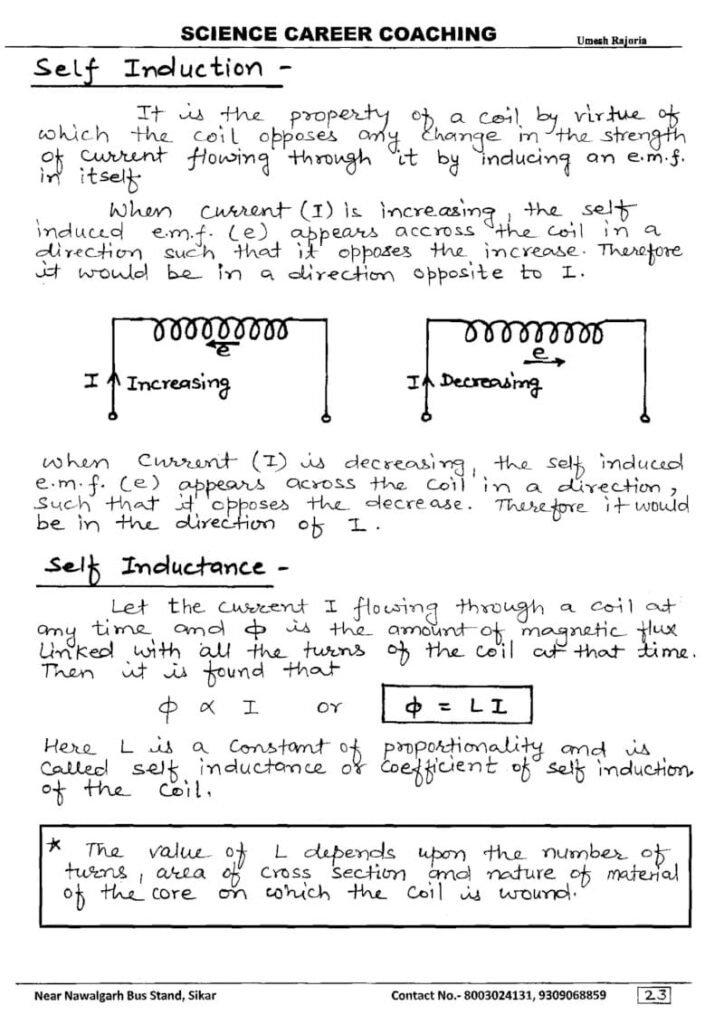 SCIENCE CAREER COACHING
Umesh Rajoria
Self Induction -
It is the property of a coil by virtue of
which the coil opposes any change in the strength
of current flowing through it by inducing an e.m.f.
in itself
When current (I) is increasing, the self
induced e.m.f. (e) appears accross the coil in a
direction such that it opposes the increase. Therefore
it would be in a direction opposite to I.
e
I Increasing
e
I Decreasing
when current (I) is decreasing, the self induced
e.m.f. (e) appears across the coil in a direction,
such that it opposes the decrease. Therefore it would
be in the direction of I.
Self Inductance -
Let the current I flowing through a coil at
any time and ϕ is the amount of magnetic flux
linked with all the turns of the coil at that time.
Then it is found that
ϕ ∝ I or ϕ = LI
Here L is a constant of proportionality and is
called self inductance or coefficient of self induction
of the coil.
* The value of L depends upon the number of
turns, area of cross section and nature of material
of the core on which the coil is wound.
Near Nawalgarh Bus Stand, Sikar
Contact No.- 8003024131, 9309068859
23